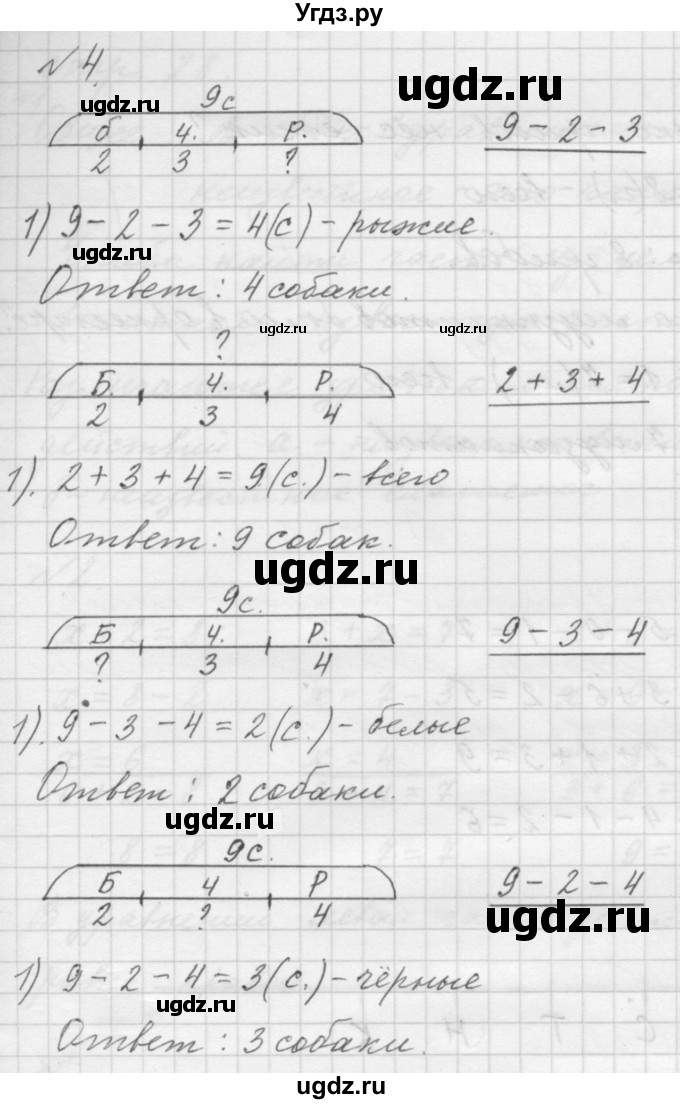 Угдз.ру
№ 4
ugdz.ru
9с
б ч. Р. 9 - 2 - 3
2 3 ?
1) 9 - 2 - 3 = 4(с) - рыжие.
ugdz.ru
Ответ: 4 собаки.
? ugdz.ru ugdz.ru
Б. ч. Р. 2 + 3 + 4
2 3 4
1). 2 + 3 + 4 = 9(с.) - всего
Ответ: 9 собак.
ugdz.ru
9с.
Б ч. Р. 9 - 3 - 4
? 3 4
1). 9 - 3 - 4 = 2(с.) - белые
Ответ: 2 собаки.
ugdz.ru
9с.
Б ч Р 9 - 2 - 4
2 ? 4 ugdz.ru
1) 9 - 2 - 4 = 3(с.) - чёрные
ugdz.ru
Ответ: 3 собаки.
ugdz.ru